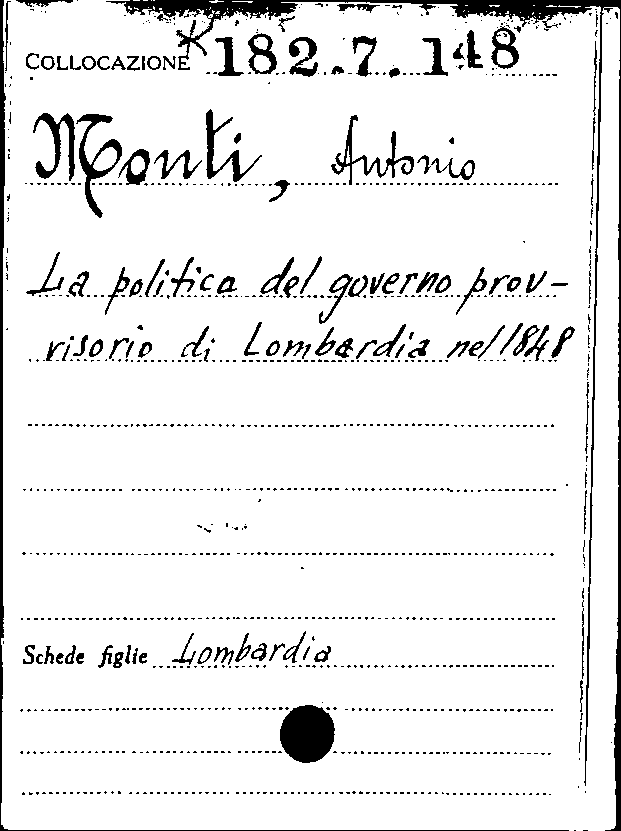 COLLOCAZIONE K 182.7.148
Monti, Antonio
La politica del governo prov-
visorio di Lombardia nel 1848
Schede figlie Lombardia